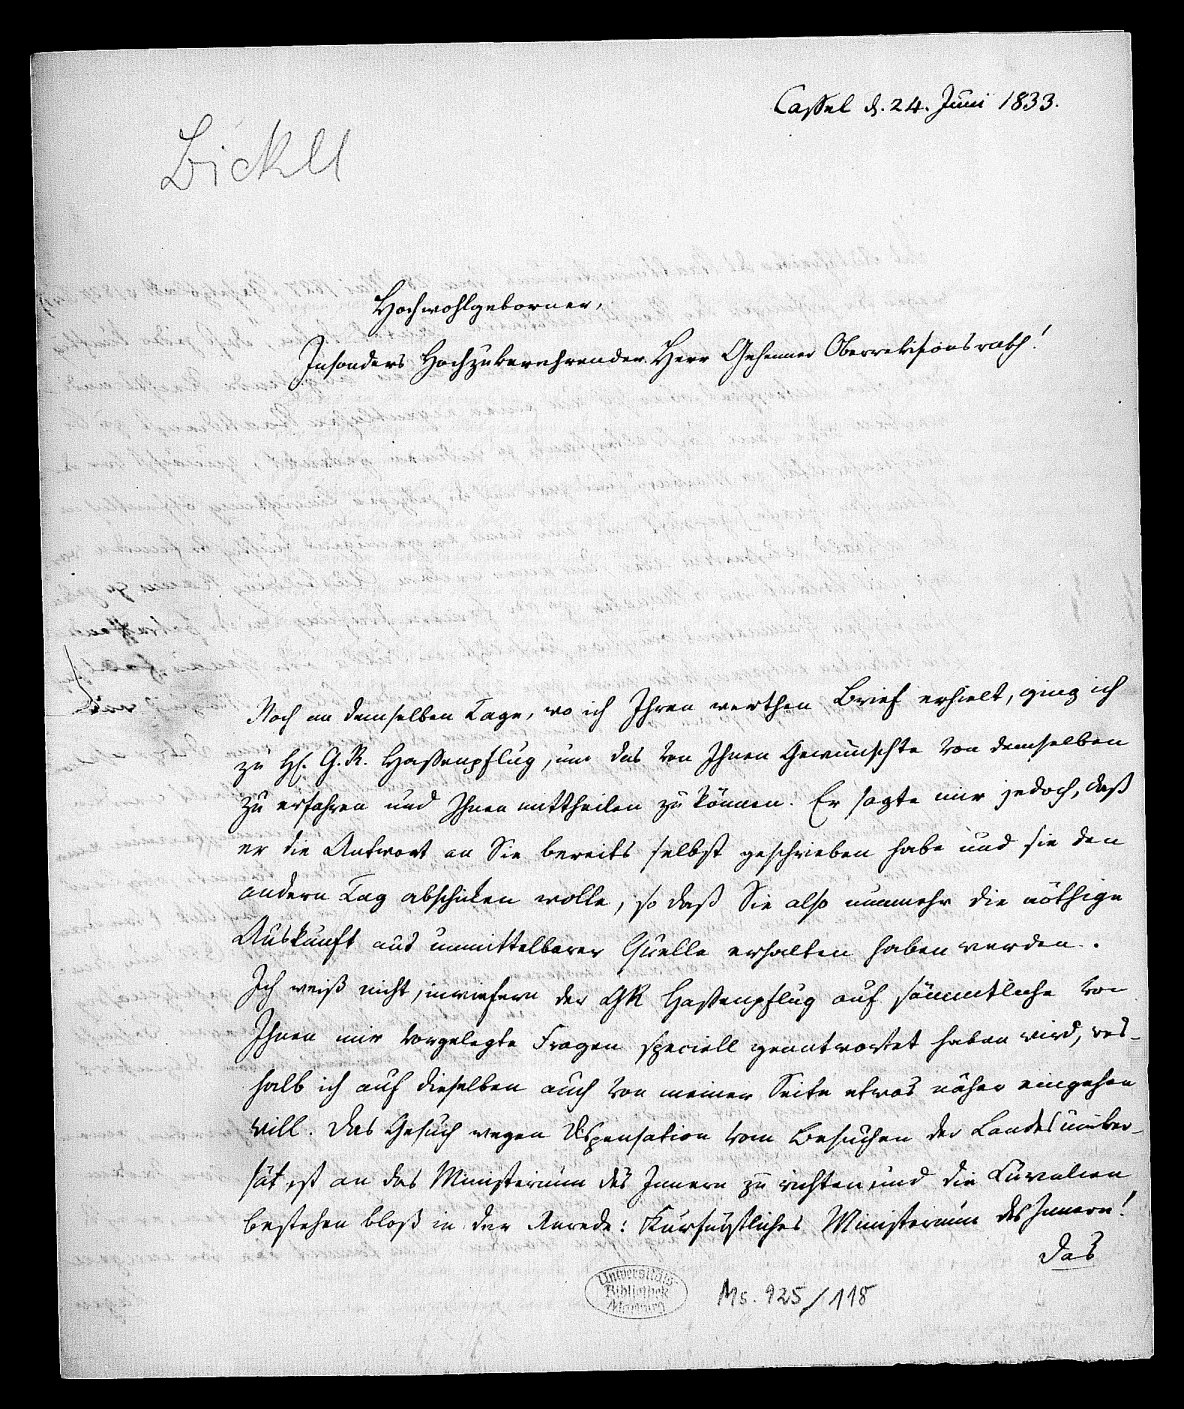 Cassel d. 24. Juni 1833.
Bickell
Hochwohlgeborner,
Insonders Hochzuverehrender Herr Geheimer Oberrevisionsrath!
Noch an demselben Tage, wo ich Ihren werthen Brief erhielt, ging ich
zu H. G.R. Hassenpflug, um das von Ihnen Gewünschte von demselben
zu erfahren und Ihnen mittheilen zu können. Er sagte mir jedoch, daß
er die Antwort an Sie bereits selbst geschrieben habe und sie den
andern Tag abschicken wolle, so daß Sie also nunmehr die nöthige
Auskunft aus unmittelbarer Quelle erhalten haben werden.
Ich weiß nicht, inwiefern der GR Hassenpflug auf sämmtliche von
Ihnen mir vorgelegte Fragen speciell geantwortet haben wird, wes-
halb ich auf dieselben auch von meiner Seite etwas näher eingehen
will. Das Gesuch wegen Dispensation vom Besuchen der Landesuniver-
sität ist an das Ministerium des Innern zu richten und die Curialien
bestehen bloß in der Anrede: Kurfürstliches Ministerium des Innern!
Das
Universitäts-
Bibliothek
Marburg
Ms. 925/118